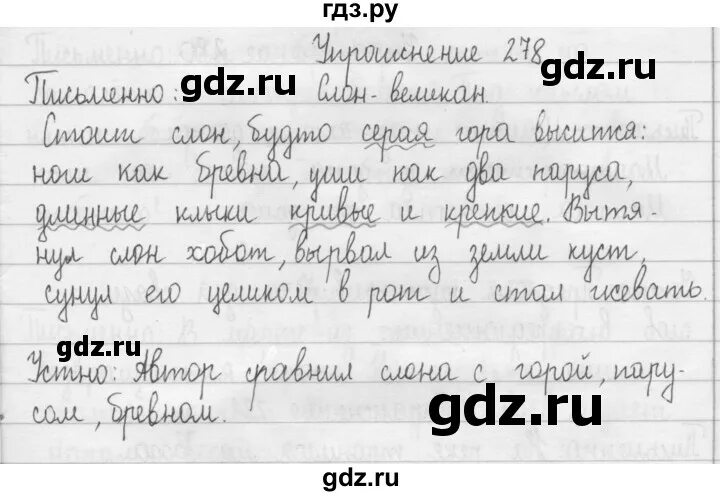 гдз.ру
Упражнение 278
gdz.ru gdz.ru
Письменно: Слон-великан.
Стоит слон, будто серая гора высится:
ноги как бревна, уши как два паруса,
длинные клыки кривые и крепкие. Вытя-
нул слон хобот, вырвал из земли куст,
сунул его целиком в рот и стал жевать.
gdz.ru
Устно: Автор сравнил слона с горой, пару-
сом, бревном.
gdz.ru
gdz.ru